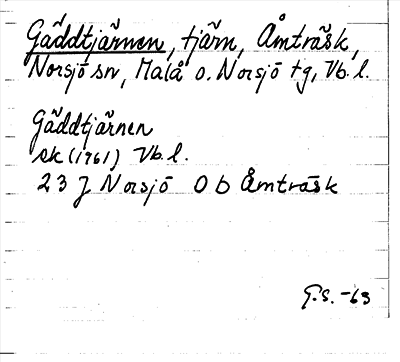 Gäddtjärnen, tjärn, Åmträsk,
Norsjö sn, Malå o. Norsjö tg, Vb. l.
Gäddtjärnen
ek (1961) Vb. l.
23 J Norsjö O b Åmträsk
G.S. -63